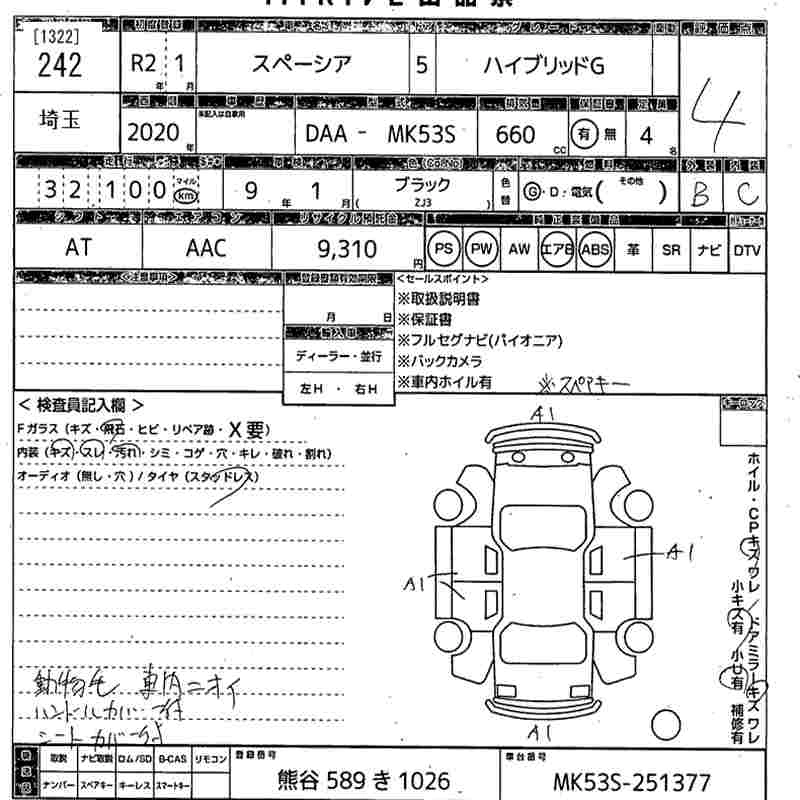 [1322]
242
R2 1
年 月
スペーシア
5
ハイブリッドG
評価点
4
埼玉
2020
年
車歴
未記入は自家用
型式
DAA - MK53S
660
cc
有 無
定員
4
名
32,100
マイル
km
9 年 1 月
ブラック
( ZJ3 )
色替
G・D・電気( その他 )
外装
B
内装
C
シフト
AT
エアコン
AAC
リサイクル預託金
9,310
円
PS PW AW エアB ABS 革 SR ナビ DTV
<注意事項>
月 日
輸入車
ディーラー・並行
左H ・ 右H
<セールスポイント>
※取扱説明書
※保証書
※フルセグナビ(パイオニア)
※バックカメラ
※車内ホイル有
※スペアキー
< 検査員記入欄 >
Fガラス(キズ・飛石・ヒビ・リペア跡・X要)
内装(キズ・スレ・汚れ・シミ・コゲ・穴・キレ・破れ・割れ)
オーディオ(無し・穴)/タイヤ(スタッドレス)
A1
A1
A1
A1
ホイル・CPキズワレ/ドアミラーキズワレ
小キズ有 小U有 補修有
動物毛 車内ニオイ
ハンドルカバー付
シートカバー付
取説 ナビ取説 ロム/SD B-CAS リモコン
ナンバー スペアキー キーレス スマートキー
登録番号
熊谷 589 き 1026
車台番号
MK53S-251377